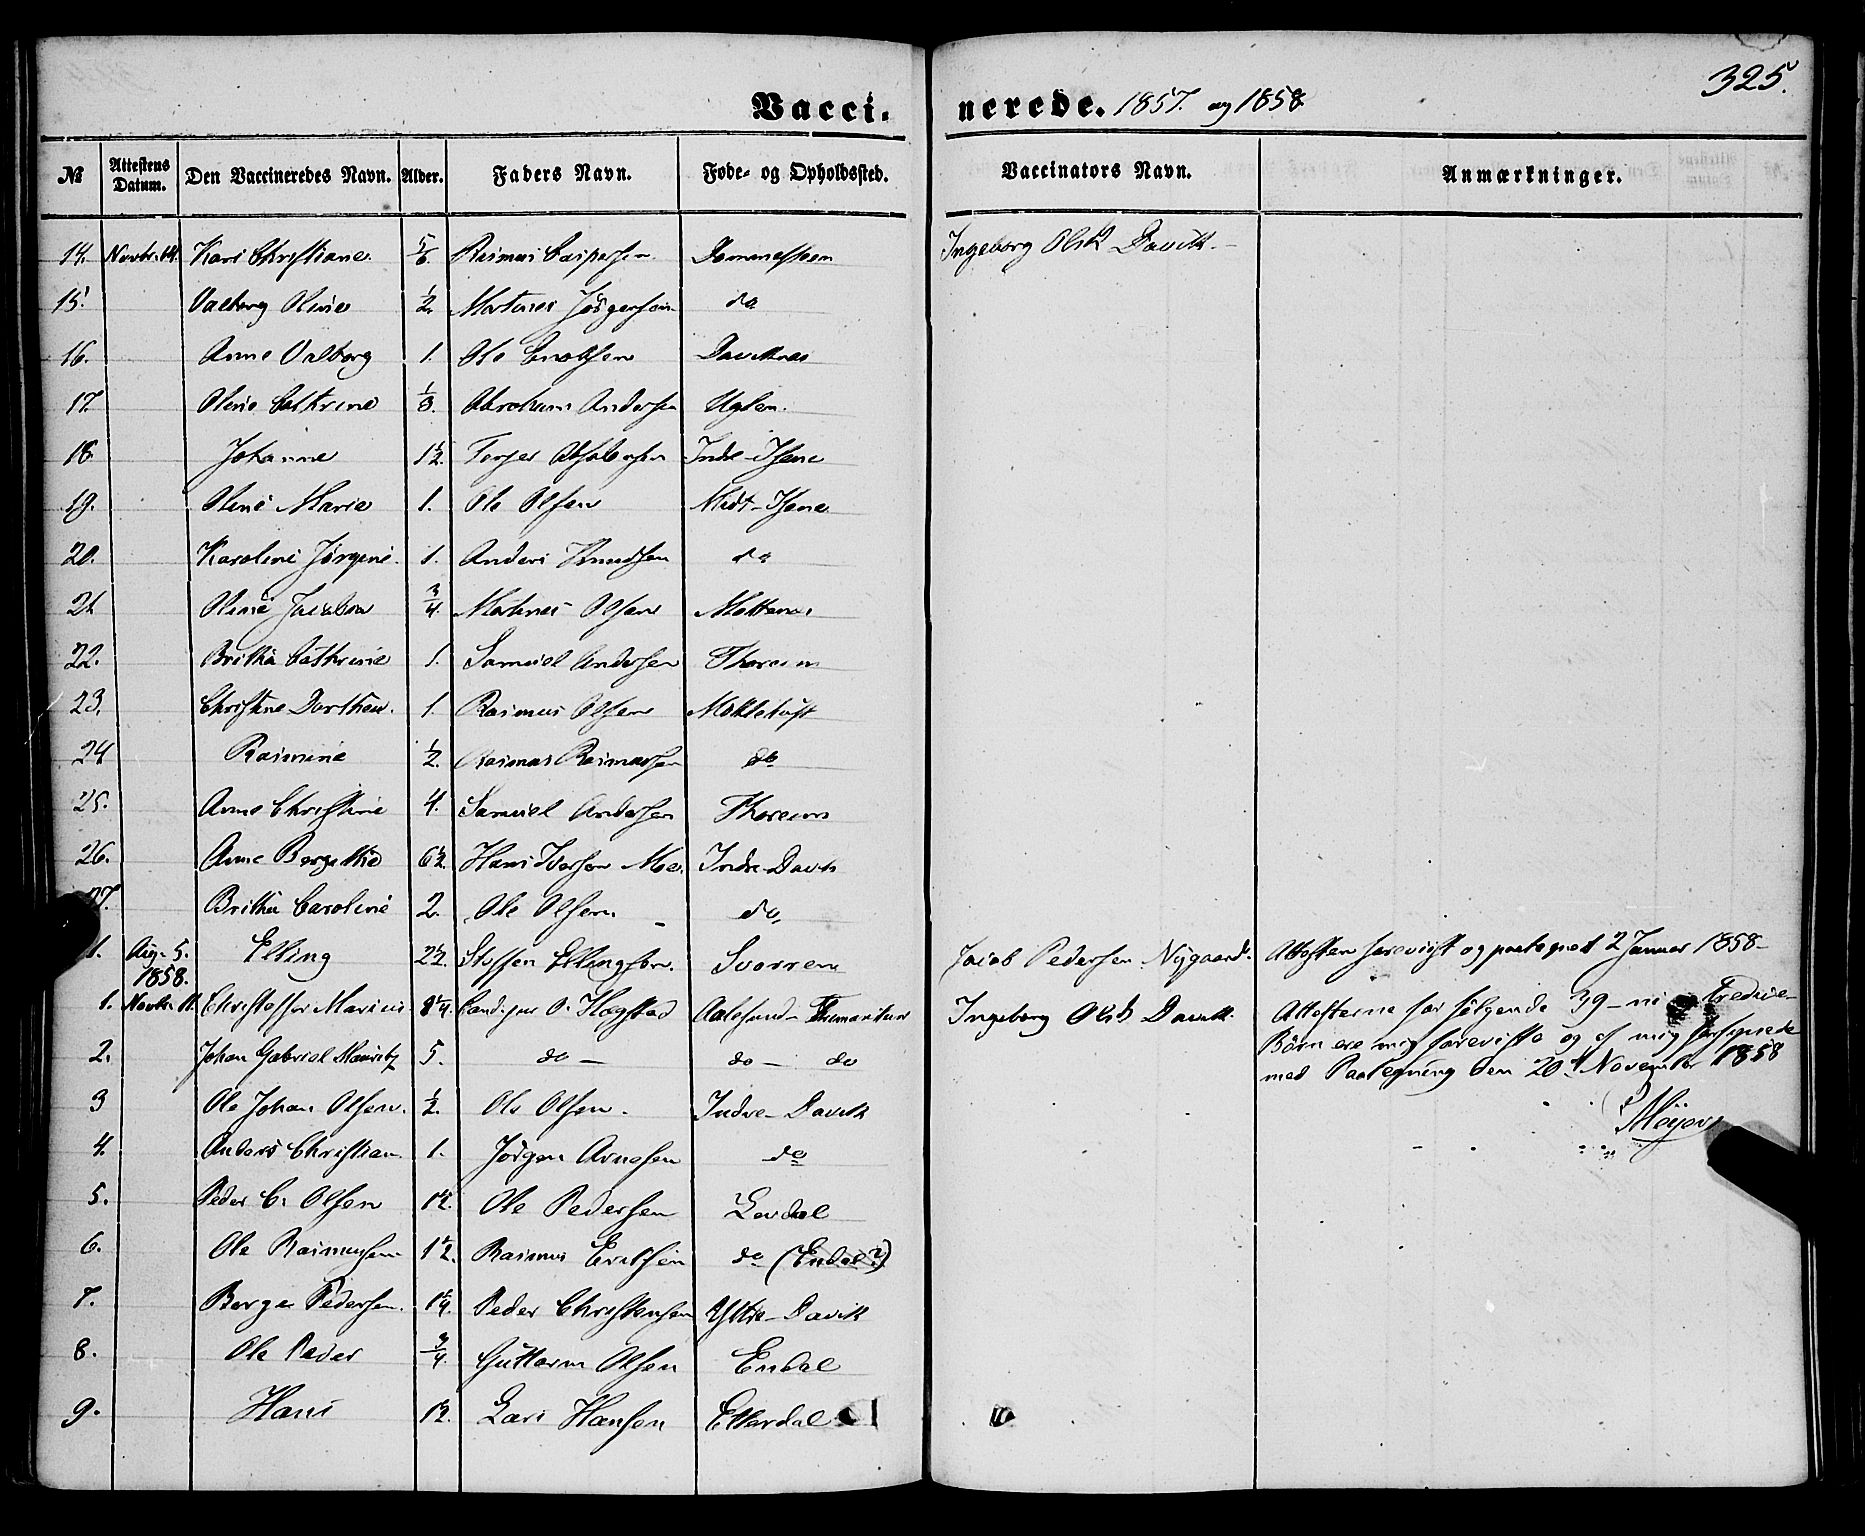 325.
Vaccinerede. 1857. og 1858
№ Attestens Datum. Den Vaccineredes Navn. Alder. Faders Navn. Føde- og Opholdssted. Vaccinators Navn. Anmærkninger.
14. Novbr. 14. Kari Christiane 5/6 Rasmus Caspersen Dommesteen Ingeborg Olsd Davik.
15. Valborg Oline 1/2. Martines Jørgensen do
16. Anne Valborg 1. Ole Daviknes
17. Oline Cathrine 1/3. Abraham Andersen Uglen.
18 Johanne 1 1/2. Terjer Absalonsen Indre-Isene
19. Oline Marie 1. Ole Olsen Midt-Isene
20. Karoline Jørgine 1. Anders Knudsen do
21 Oline Jacobea 3/4. Martines Olsen
22. Brithe Cathrine 1. Samuel Andersen Thoreim
23. Christine Dorthea. 1. Rasmus Olsen Mokletuft
24 Rasmine 1/2. Rasmus Rasmussen do
25. Anne Christine 4. Samuel Andersen Thoreim
26. Anne Bergitthe 6 1/2. Hans Iversen Moe. Indre-Davik
27. Brithe Caroline 2. Ole Olsen do
1. Aug. 5. 1858. Elling 2 1/2. Steffen Ellingsen Svorren Jacob Pedersen Nygaard. Attesten forevist og paategnet 2 Januar 1858
1. Novbr. 11. Christoffer Marius Cand. O. Hogstad Aalesund- Ingeborg Olsd Davik. Attesterne for følgende 39-ni og Tredive-
2. Johan Gabriel Mauritz 5. do do - do Børn ere mig foreviste og af mig forsynede
med Paategning den 20d November 1858
3 Ole Johan Olsen. 1/2. Ole Olsen. Indre-Davik
Meyer
4. Anders Christian 1. Jørgen Arnesen do
5. Peder C. Olsen 1 1/2. Ole Pedersen
6. Ole Rasmussen 1 1/2. Rasmus Eriksen do (Endal?)
7. Berge Pedersen. 1 1/4. Peder Christensen Yttre-Davik
8. Ole Peder 3/4. Guttorm Olsen Endal
9. Hans 1 1/2. Lars Hansen